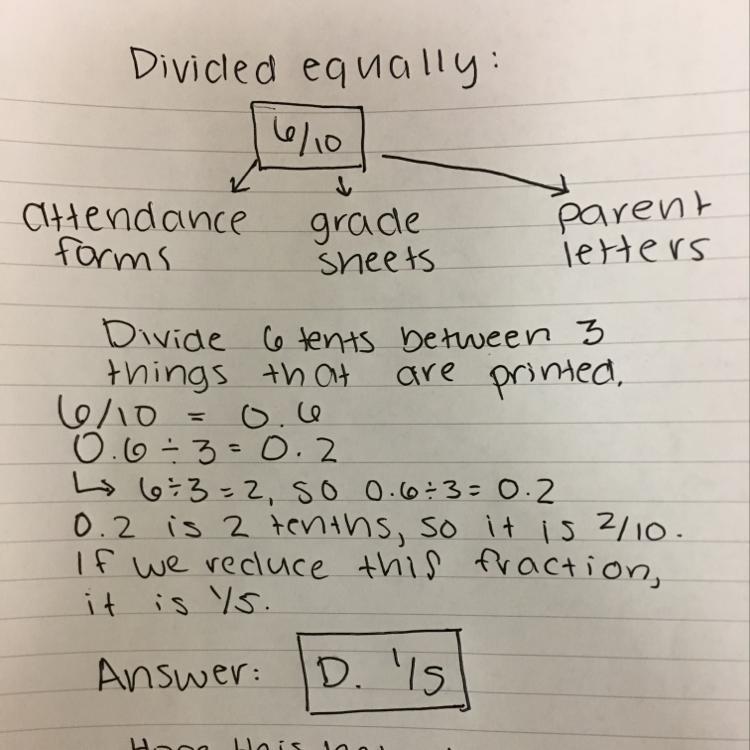 Divided equally:
6/10
attendance forms
grade sheets
parent letters
Divide 6 tents between 3
things that are printed.
6/10 = 0.6
0.6 ÷ 3 = 0.2
↳ 6÷3=2, so 0.6÷3= 0.2
0.2 is 2 tenths, so it is 2/10.
If we reduce this fraction,
it is 1/5.
Answer: D. 1/5